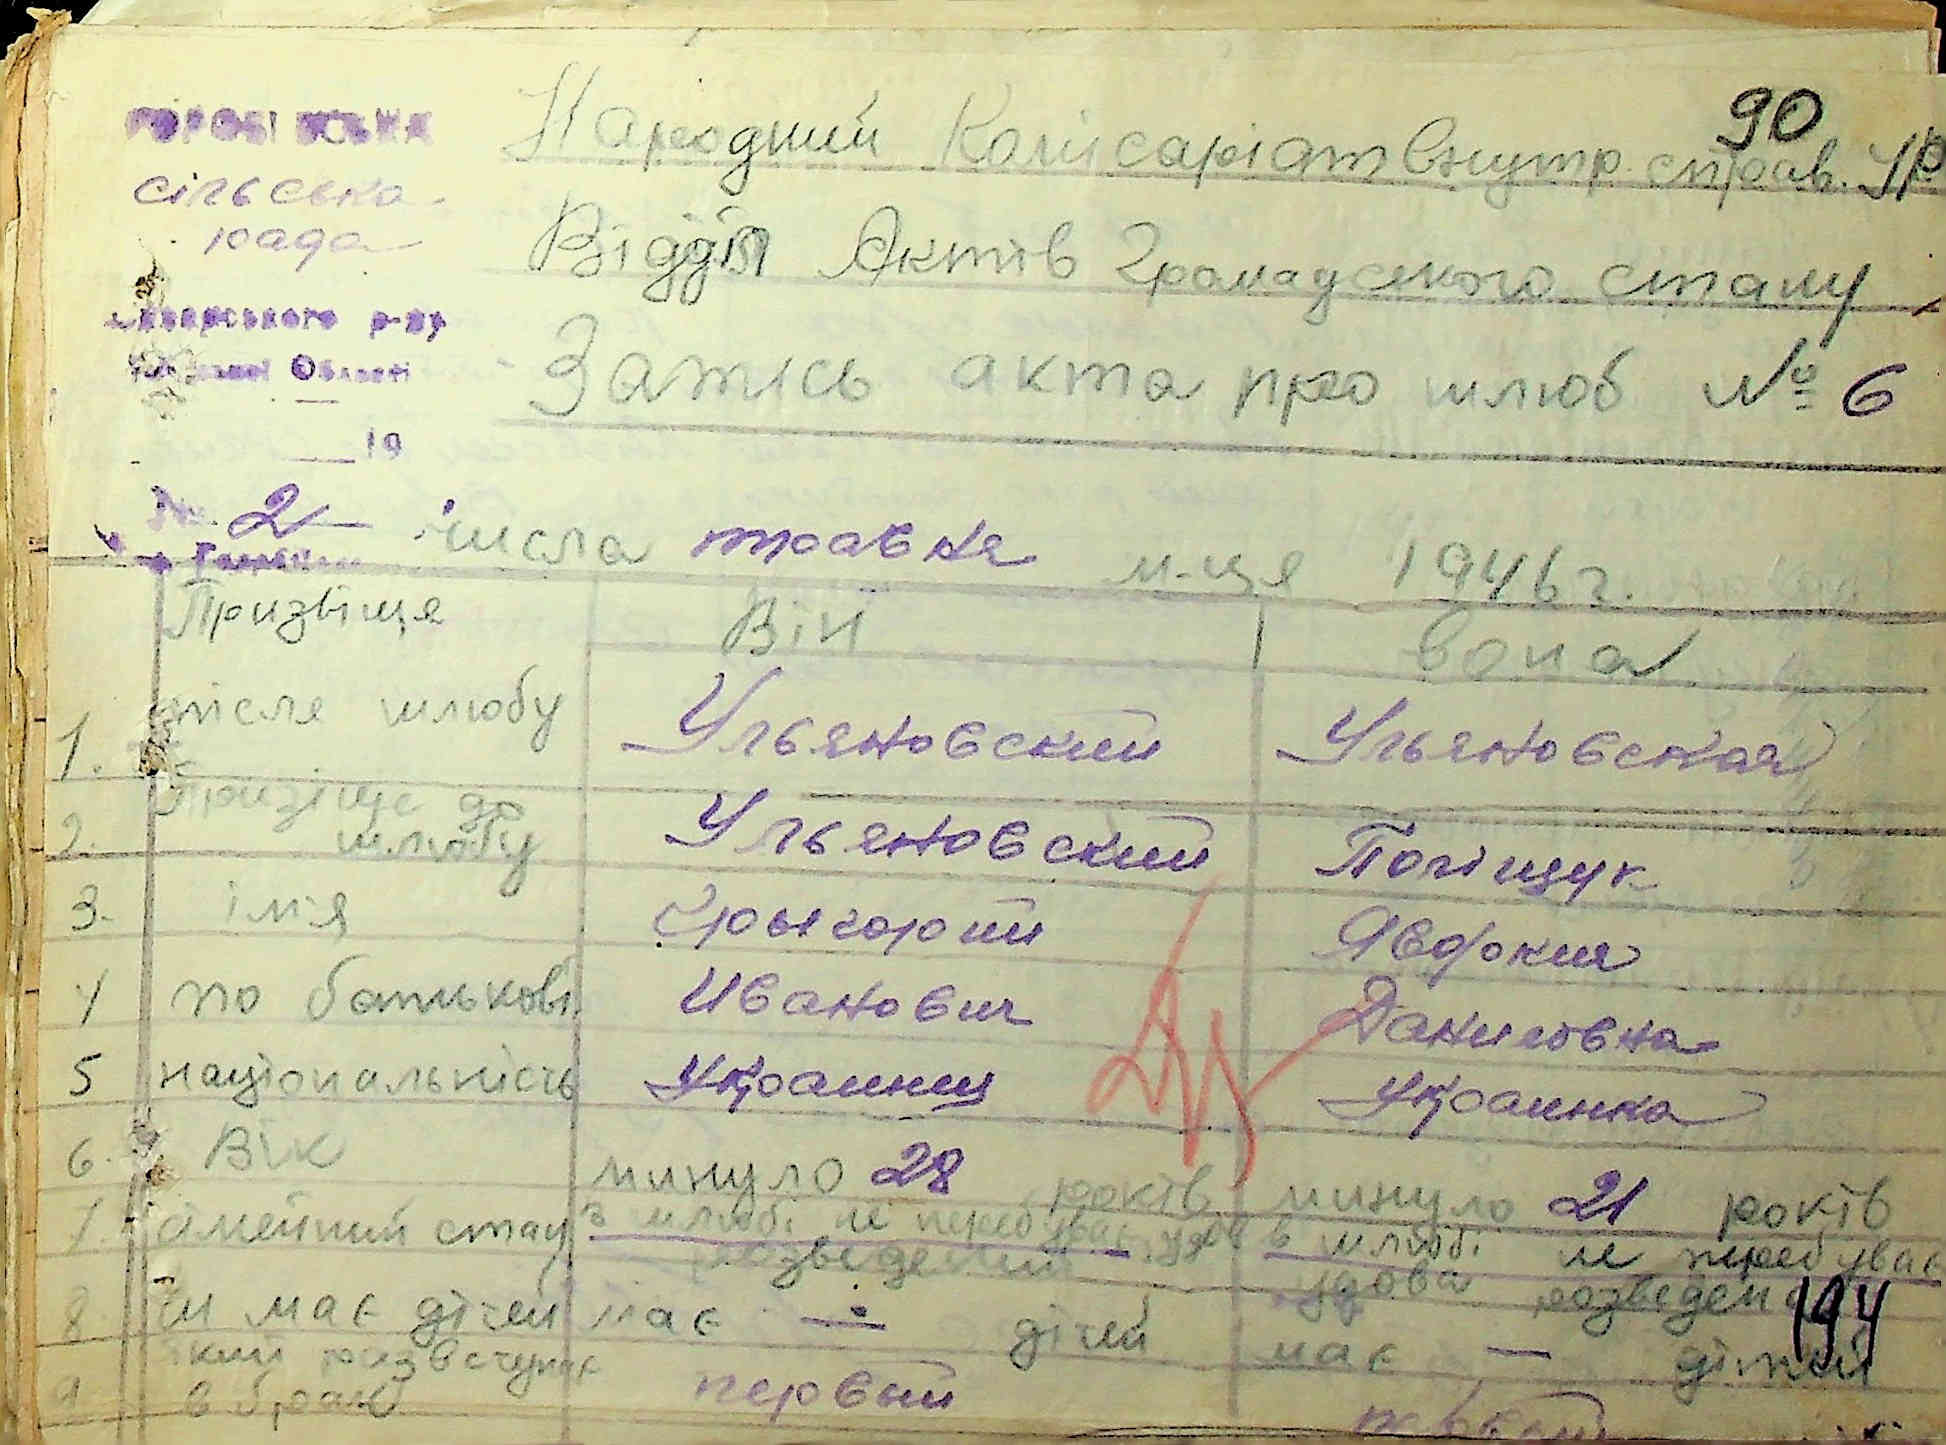 90
Народний Комісаріат внутр. справ. УР
сільська
рада
Відділ Актів Громадського стану
р-ну
Області
Запись акта про шлюб № 6
19
2 числа травня м-ця 1946 г.
Призвіще Він вона
1. після шлюбу Ульяновский Ульяновская
Призвіще до
2. шлюбу Ульяновский Поліщук
3. імя Грыгорий Явдокия
4 по батькові Иванович Даниловна
5 національність Украинец Украинка
6. Вік минуло 28 років минуло 21 років
7. сімейний стан в шлюбі не перебуває, удов в шлюбі не перебуває
розведений удова розведена
194
8. чи має дітей має — дітей має — дітей
який раз вступає
9 в брак первый первый